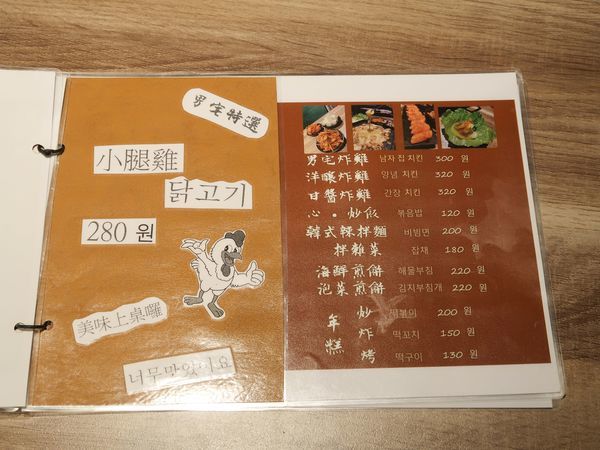 男宅特選
小腿雞
닭고기
280 원
美味上桌囉
너무맛있어요
男宅炸雞 남자 집 치킨 300 원
洋釀炸雞 양념 치킨 320 원
甘醬炸雞 간장 치킨 320 원
心。炒飯 볶음밥 120 원
韓式辣拌麵 비빔면 200 원
拌雜菜 잡채 180 원
海鮮煎餅 해물부침 220 원
泡菜煎餅 김치부침개 220 원
年糕
炒 200 원
炸 떡꼬치 150 원
烤 떡구이 130 원